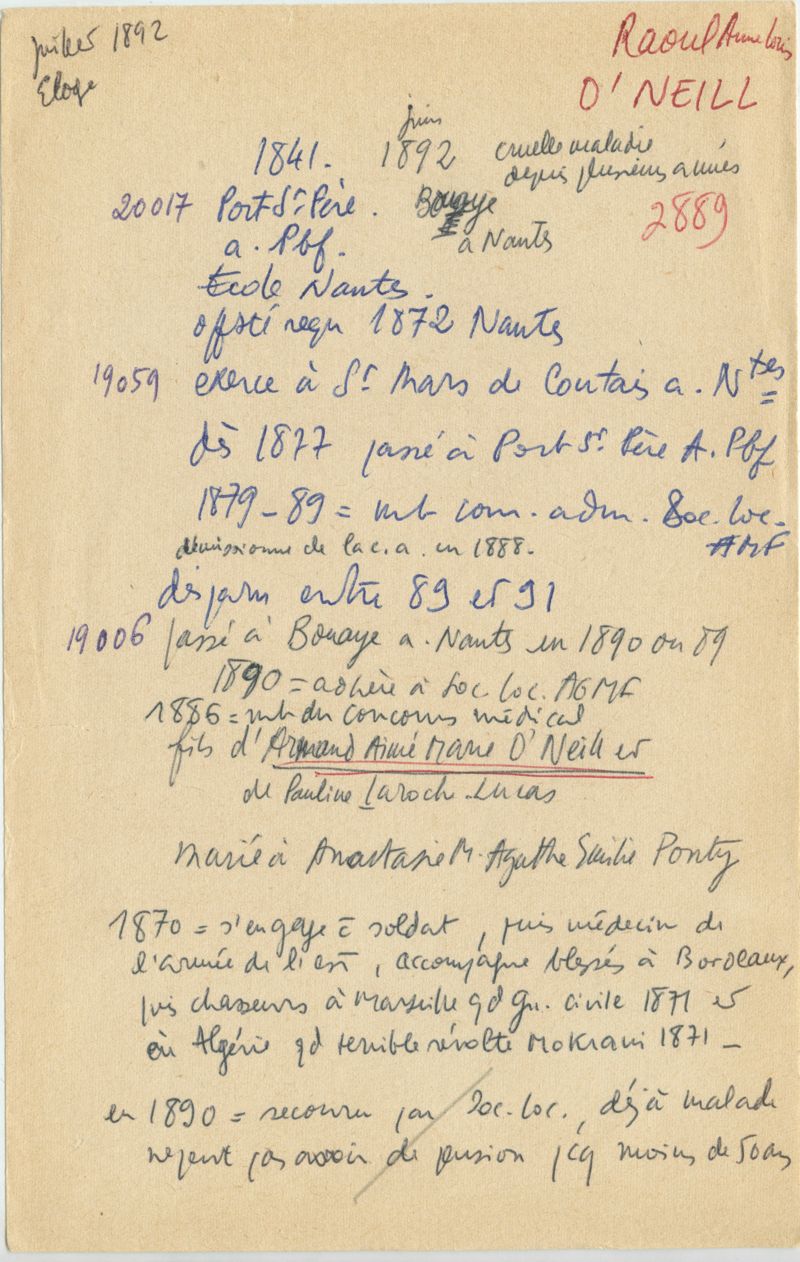 juillet 1892
Eloge
Raoul Anne Louis
O'NEILL
juin
1841. 1892 cruelle maladie
depuis plusieurs années
20017 Port St Père. Bouaye
a. Pbf. à Nantes
2889
Ecole Nantes.
off sté reçu 1872 Nantes
19059 exerce à St Mars de Coutais a. Ntes
dès 1877 passé à Port St Père A. Pbf
1879-89 = mb com. adm. Soc. loc.
AGMF
démissionne de la c. a. en 1888.
disparu entre 89 et 91
19006 passé à Bouaye a. Nantes en 1890 ou 89
1890 = adhère à Soc. loc. AGMF
1886 = mb du Concours médical
fils d'Armand Aimé Marie O'Neill et
de Pauline Laroche-Lucas
marié à Anastasie M. Agathe Emilie Ponty
1870 = s'engage c̄ soldat, puis médecin de
l'armée de l'est, accompagne blessés à Bordeaux,
puis chasseurs à Marseille qd Gu. civile 1871 et
en Algérie qd terrible révolte Mokrani 1871 -
en 1890 = secouru par Soc. loc., déjà malade
ne peut pas avoir de pension pcq moins de 50 ans